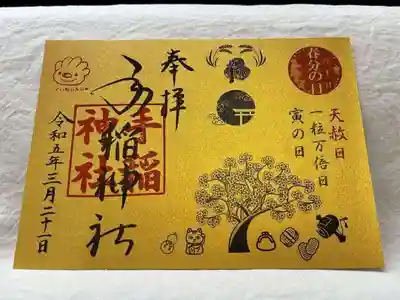 春分の日
天赦日
一粒万倍日
寅の日
奉拝
手稲神社
手稲
神社
令和五年三月二十一日